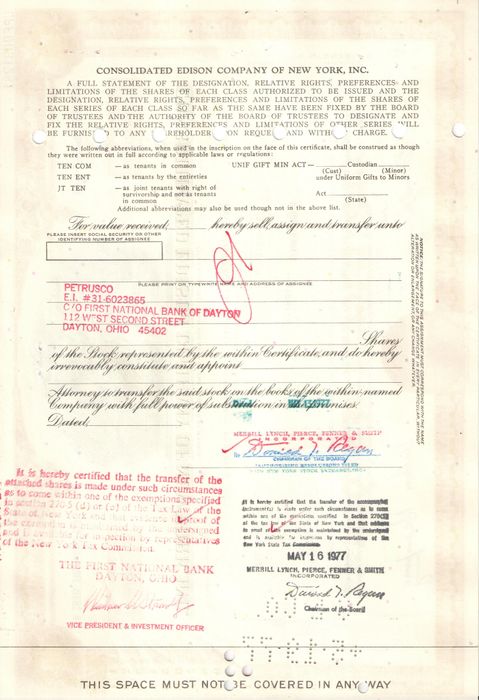 CONSOLIDATED EDISON COMPANY OF NEW YORK, INC.
A FULL STATEMENT OF THE DESIGNATION, RELATIVE RIGHTS, PREFERENCES AND
LIMITATIONS OF THE SHARES OF EACH CLASS AUTHORIZED TO BE ISSUED AND THE
DESIGNATION, RELATIVE RIGHTS, PREFERENCES AND LIMITATIONS OF THE SHARES OF
EACH SERIES OF EACH CLASS SO FAR AS THE SAME HAVE BEEN FIXED BY THE BOARD
OF TRUSTEES AND THE AUTHORITY OF THE BOARD OF TRUSTEES TO DESIGNATE AND
FIX THE RELATIVE RIGHTS, PREFERENCES AND LIMITATIONS OF OTHER SERIES WILL
BE FURNIS TO ANY REHOLDER ON REQUE AND WITH CHARGE.
The following abbreviations, when used in the inscription on the face of this certificate, shall be construed as though
they were written out in full according to applicable laws or regulations:
TEN COM — as tenants in common UNIF GIFT MIN ACT — Custodian
(Cust) (Minor)
TEN ENT — as tenants by the entireties under Uniform Gifts to Minors
JT TEN — as joint tenants with right of
survivorship and not as tenants
in common
Act
(State)
Additional abbreviations may also be used though not in the above list.
For value received, hereby sell, assign and transfer unto
PLEASE INSERT SOCIAL SECURITY OR OTHER
IDENTIFYING NUMBER OF ASSIGNEE
PLEASE PRINT OR TYPEWRITE NAME AND ADDRESS OF ASSIGNEE
PETRUSCO
E.I. #31-6023865
C/O FIRST NATIONAL BANK OF DAYTON
112 WEST SECOND STREET
DAYTON, OHIO 45402
Shares
of the Stock represented by the within Certificate, and do hereby
irrevocably constitute and appoint
Attorney to transfer the said stock on the books of the within named
Company with full power of substitution in the premises.
Dated,
NOTICE: THE SIGNATURE TO THIS ASSIGNMENT MUST CORRESPOND WITH THE NAME
AS WRITTEN UPON THE FACE OF THE CERTIFICATE, IN EVERY PARTICULAR, WITHOUT
ALTERATION OR ENLARGEMENT, OR ANY CHANGE WHATEVER.
MERRILL LYNCH, PIERCE, FENNER & SMITH
INCORPORATED
By Donald T. Regan
CHAIRMAN OF THE BOARD
AUTHORIZING RESOLUTIONS FILED
NEW YORK STOCK EXCHANGE, INC.
It is hereby certified that the transfer of the
attached shares is made under such circumstances
as to come within one of the exemptions specified
in section 270.5 (d) or (e) of the Tax Law of the
State of New York and that evidence of
the exemption
and is available for inspection by representatives
of the New York Tax Commission.
THE FIRST NATIONAL BANK
DAYTON, OHIO
VICE PRESIDENT & INVESTMENT OFFICER
It is hereby certified that the transfer of the accompanying
instrument(s) is made under such circumstances as to come
within one of the exemptions specified in Section 270(5)
of the tax law of the State of New York and that evidence
of exemption is maintained by the undersigned
and is available for inspection by representatives of the
New York State Tax Commission.
MAY 16 1977
MERRILL LYNCH, PIERCE, FENNER & SMITH
INCORPORATED
Donald T. Regan
Chairman of the Board
THIS SPACE MUST NOT BE COVERED IN ANY WAY